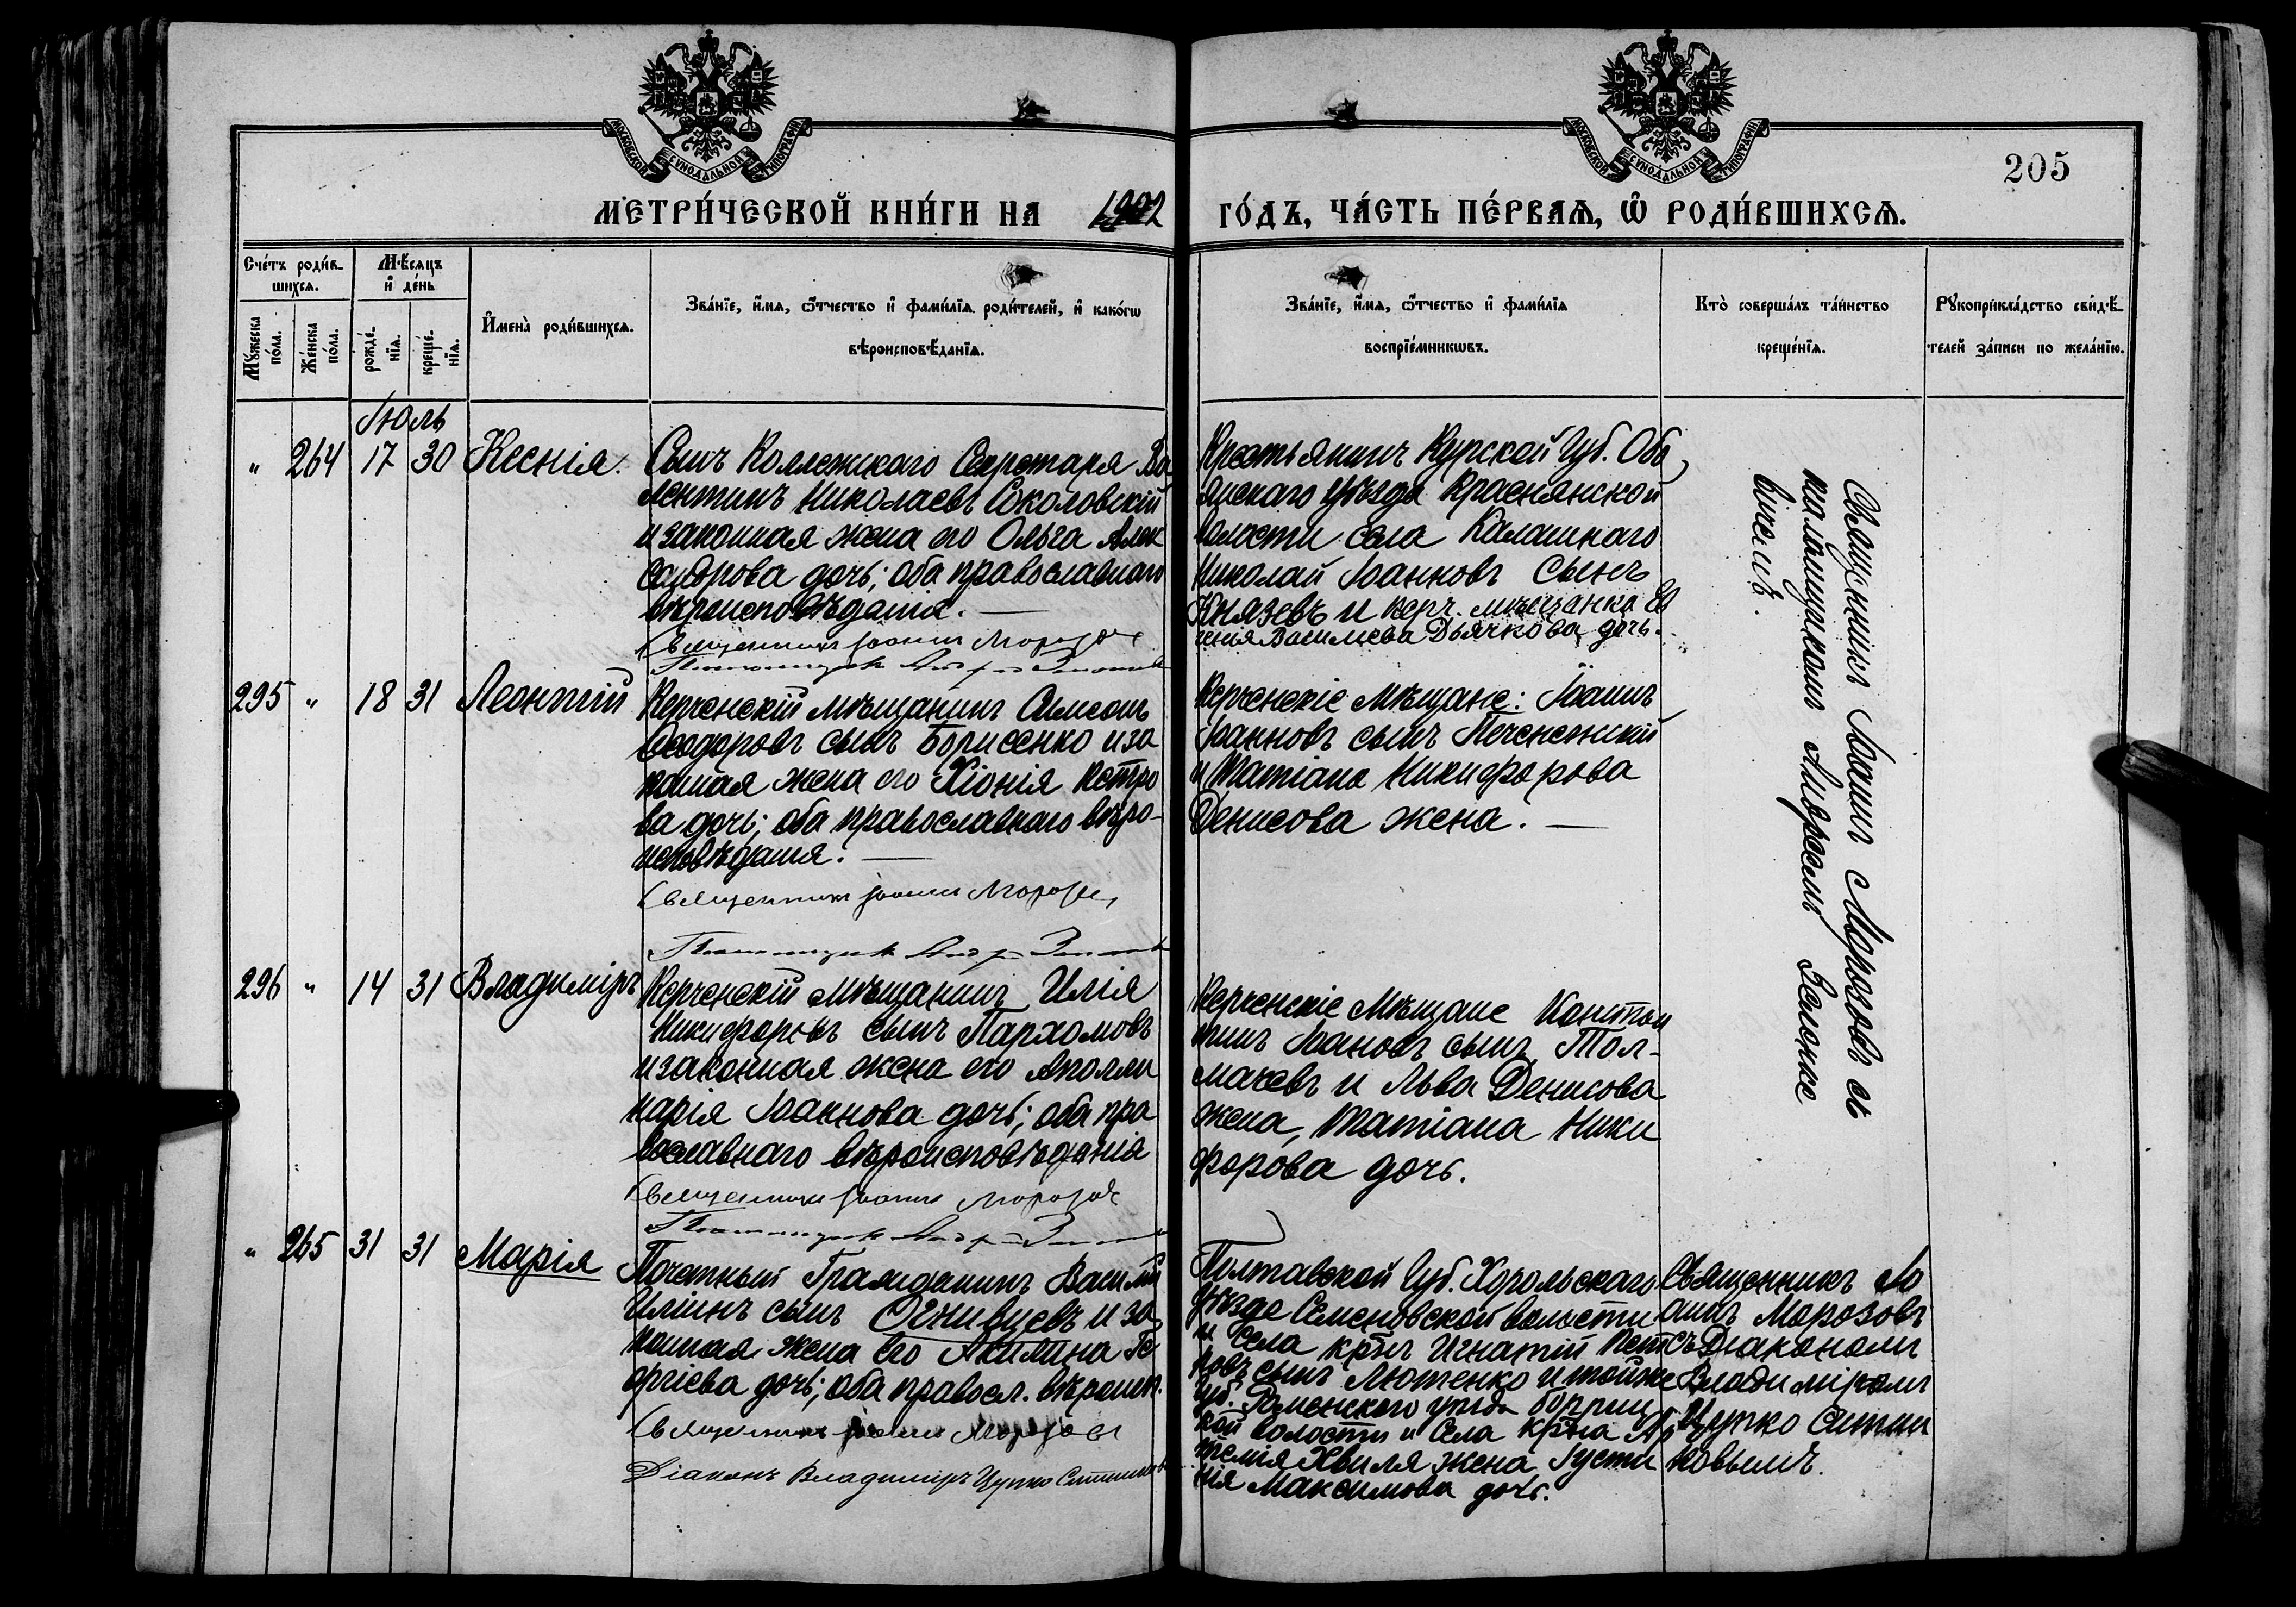 МОСКОВСКОЙ СѴНОДАЛЬНОЙ ТИПОГРАФІИ
МОСКОВСКОЙ СѴНОДАЛЬНОЙ ТИПОГРАФІИ
205
МЕТРИ́ЧЕСКОЙ КНИ́ГИ НА 1902 ГО́ДЪ, ЧА́СТЬ ПЕ́РВАѦ, Ѿ РОДИ́ВШИХСѦ.
Сче́тъ роди́в-
шихсѧ.
Мꙋжеска по́ла.
Же́нска по́ла.
Мѣ́сѧцъ
и҆ де́нь
рожде́-
нїѧ.
креще́-
нїѧ.
И҆мена̀ роди́вшихсѧ.
Зва́нїе, и҆́мѧ, ѻ҆́тчество и҆ фами́лїѧ роди́телей, и҆ како́гѡ
вѣроисповѣ́данїѧ.
Зва́нїе, и҆́мѧ, ѻ҆́тчество и҆ фами́лїѧ
воспрїе́мникѡвъ.
Кто̀ соверша́лъ та́инство
креще́нїѧ.
Рꙋкоприкла́дство свидѣ́-
телей за́писи по жела́нїю.
Іюль
" 264 17 30 Ксенія.
Сынъ Коллежскаго Секретаря Ва
лентинъ Николаевъ Соколовскій
и законная жена его Ольга Алек
сандрова дочь; оба православнаго
вѣроисповѣданія. —
Священникъ Іоаннъ Морозовъ
Крестьянинъ Курской Губ. Обо
янскаго уѣзда Краснянской
волости села Калашнаго
Николай Іоанновъ сынъ
Князевъ и керч. мѣщанка Ев
генія Васильева Дьячкова дочь.
Священникъ Іоаннъ Морозовъ съ
псаломщикомъ Андреемъ Зеленке
вичемъ.
295 " 18 31 Леонтій
Керченскій мѣщанинъ Симеонъ
Ѳеодоровъ сынъ Борисенко и за
конная жена его Хіонія Петро
ва дочь; оба православнаго вѣро-
исповѣданія. —
Священникъ Іоаннъ Морозовъ
Керченскіе Мѣщане: Іоаннъ
Іоанновъ сынъ Печенежскій
и Татіана Никифорова
Денисова жена. —
296 " 14 31 Владиміръ
Керченскій мѣщанинъ Илія
Никифоровъ сынъ Пархомовъ
и законная жена его Аполли
нарія Іоаннова дочь; оба пра
вославнаго вѣроисповѣданія
Священникъ Іоаннъ Морозовъ
Керченскіе Мѣщане Констан
тинъ Іоановъ сынъ Тол-
мачевъ и Льва Денисова
жена, Татіана Ники
форова дочь.
" 265 31 31 Марія
Почетный Гражданинъ Василій
Иліинъ сынъ Огнивцевъ и за
конная жена его Акилина Ге
оргіева дочь; оба правосл. вѣроисп.
Священникъ Іоаннъ Морозовъ
Діаконъ Владиміръ Цупко Ситников
Полтавской Губ. Хорольскаго
уѣзда Семеновской волости
и села кр̃нъ Игнатій Пет
ровъ сынъ Лютенко и той же
губ. Роменскаго уѣзда
кой волости и села кр̃на Ар
темія Хвиля жена Іусти
нія Максимова дочь.
Священникъ Іо
аннъ Морозовъ
съ Діакономъ
Владиміромъ
Цупко Ситни
ковымъ.